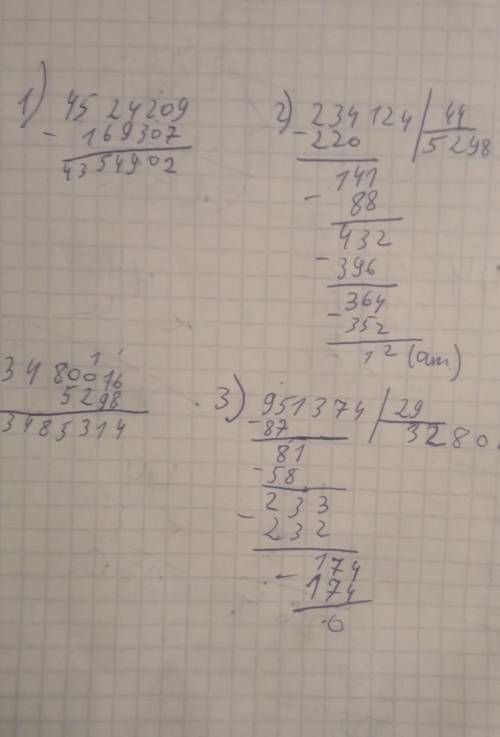 1) 4524209
- 169307
4354902
2) 234124 | 44
- 220 5298
141
- 88
432
- 396
364
- 352
12 (ост)
1
3480016
5298
3485314
3) 951374 | 29
- 87 3280
81
- 58
233
- 232
174
- 174
0